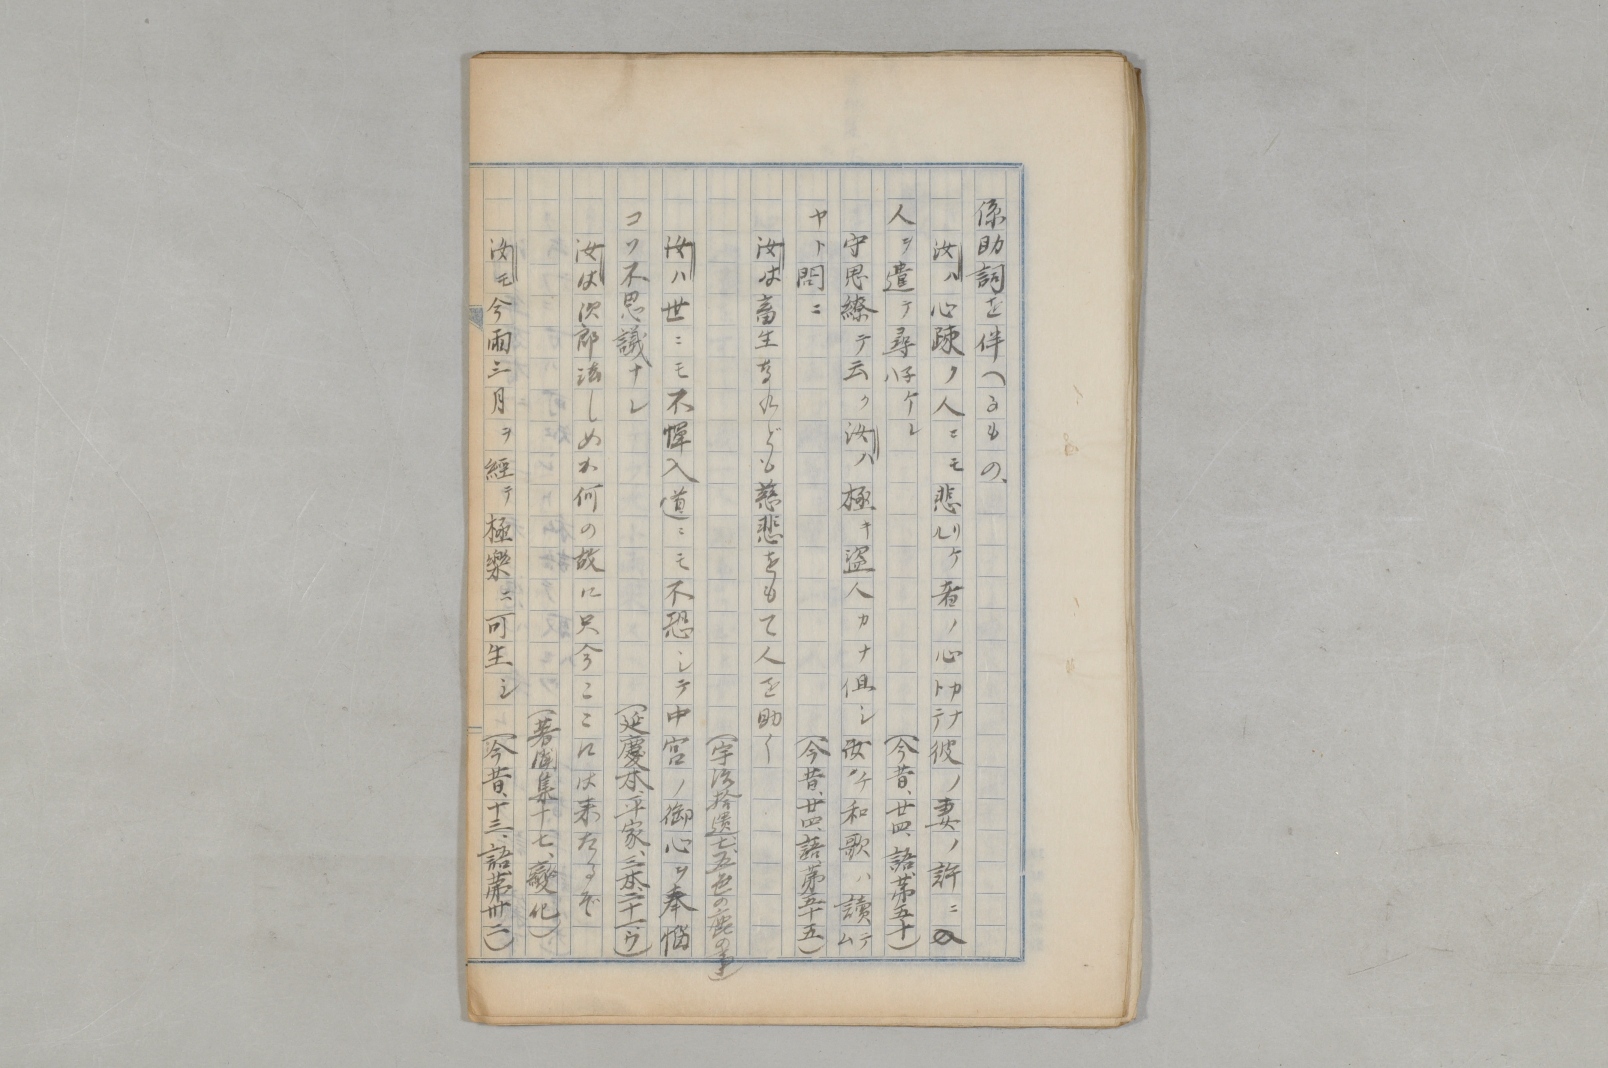 係助詞を伴へるもの、
汝ハ心疎ク人ニモ悲リケル者ノ心カナトテ彼ノ妻ノ許ニ
人ヲ遣テ尋ケレ
(今昔、廿四、語、第五十)
守思繚テ云ク汝ハ極キ盗人カナ但シ和歌ハ讀テムヤト問ニ
(今昔、廿四、語、第五十五)
汝は畜生なれども慈悲をもて人を助く
(宇治拾遺七、五色の鹿の事)
汝ハ世ニモ不憚入道ニモ不恐シテ中宮ノ御心ヲ奉悩
コソ不思議ナレ
(延慶本、平家、三本、二十一ウ)
汝は次郎法しめか何の故に只今ここには来たるぞ
(著聞集十七、變化)
汝モ今両三月ヲ經テ極樂ニ可生シ
(今昔、十三、語、第卅二)